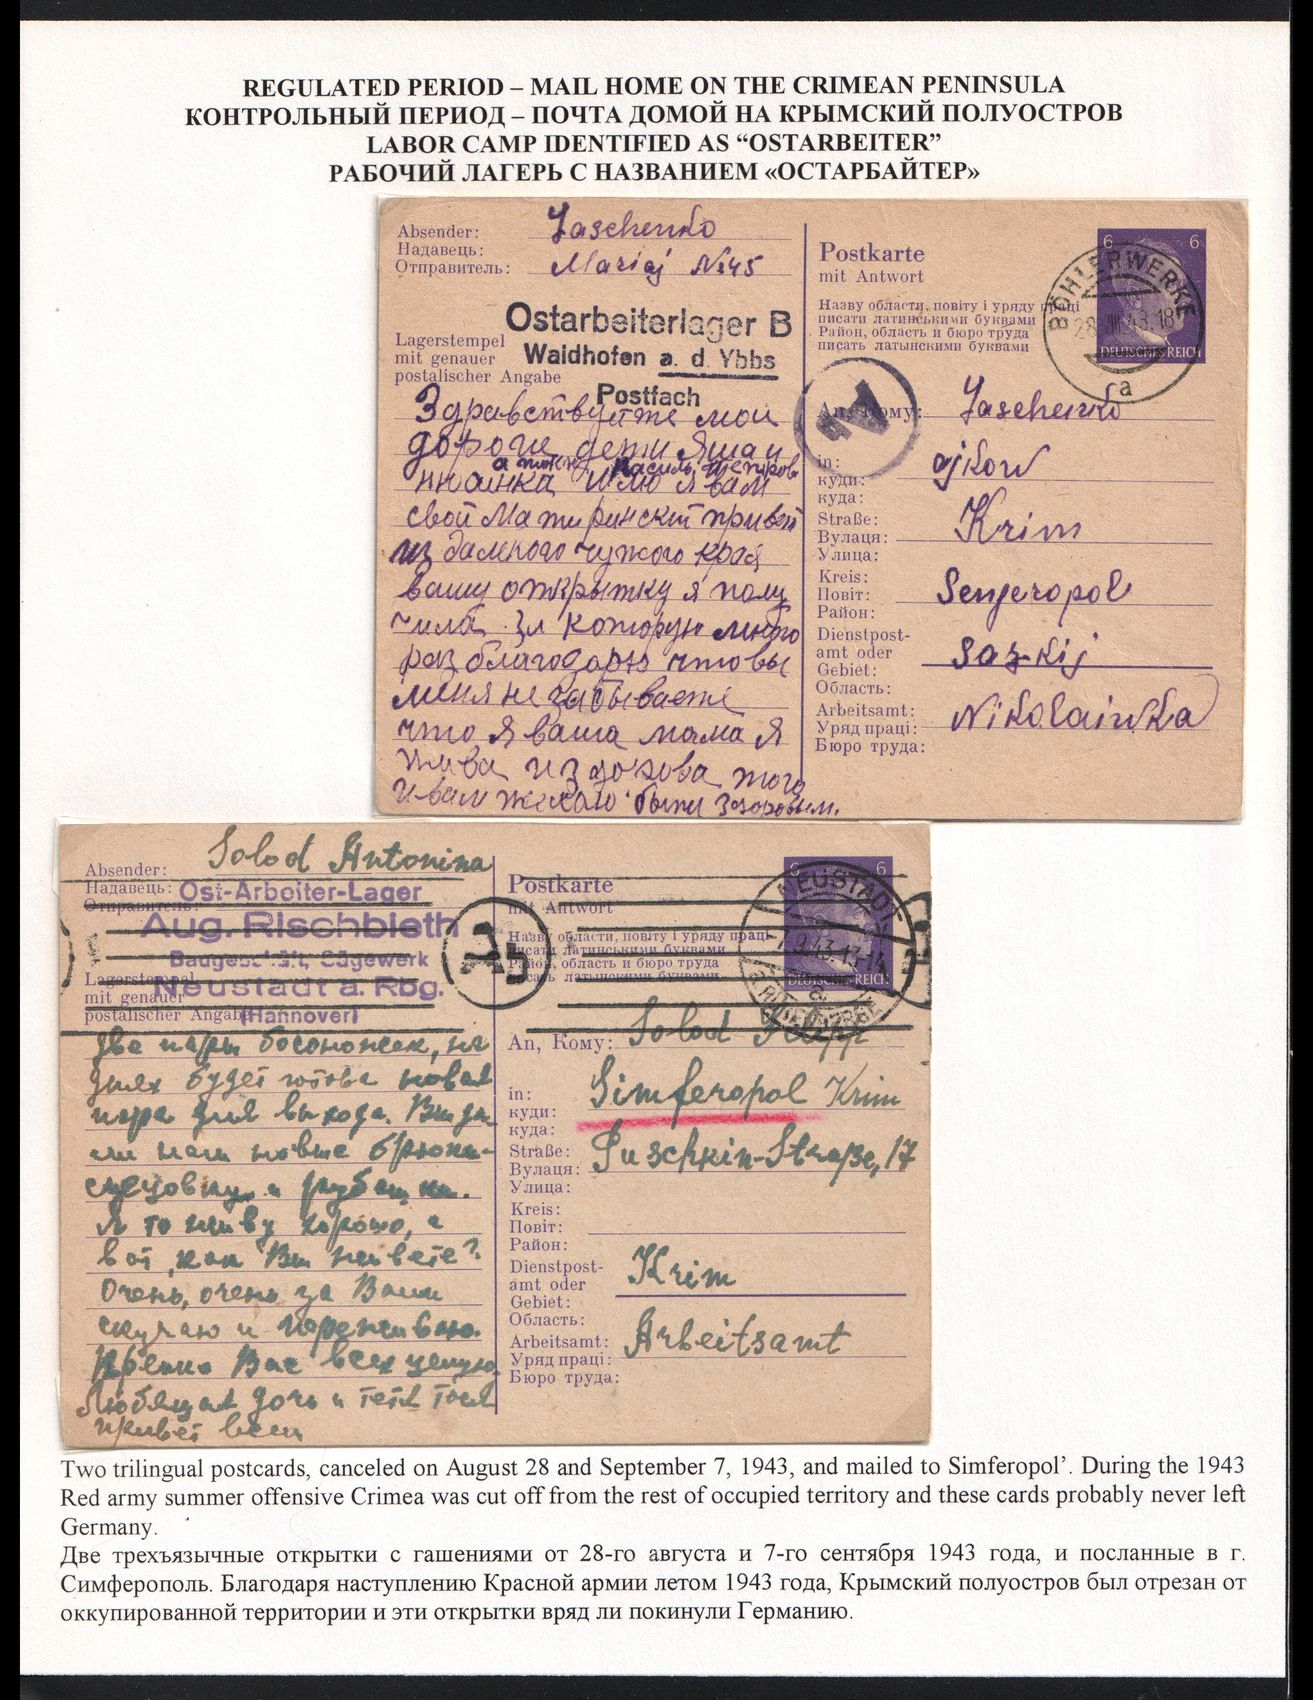 REGULATED PERIOD – MAIL HOME ON THE CRIMEAN PENINSULA
КОНТРОЛЬНЫЙ ПЕРИОД – ПОЧТА ДОМОЙ НА КРЫМСКИЙ ПОЛУОСТРОВ
LABOR CAMP IDENTIFIED AS “OSTARBEITER”
РАБОЧИЙ ЛАГЕРЬ С НАЗВАНИЕМ «ОСТАРБАЙТЕР»
Absender: Jaschenko
Надавець:
Отправитель: Mariaj №45
Ostarbeiterlager B
Lagerstempel
mit genauer
postalischer Angabe
Waidhofen a. d. Ybbs
Postfach
Здравствуйте мои
дороги дети Яша и
свой Материнский привет
из далекого чужого края
вашу открытку я полу
чила за которую много
раз благодарю что вы
меня не забываете
что я ваша мама я
жива и здорова того
и вам желаю быть здоровым.
Postkarte
mit Antwort
Назву области, повіту і уряду праці
писати латинськими буквами
Район, область и бюро труда
писать латынскими буквами
6 6
DEUTSCHES REICH
BÖHLERWERKE
28.VIII.43.18
a
An, Кому: Jaschenko
in:
куди:
куда:
ajkow
Straße:
Вулаця:
Улица:
Krim
Kreis:
Повіт:
Район:
Senjeropol
Dienstpost-
amt oder
Gebiet:
Область:
Saz-kij
Arbeitsamt:
Уряд праці:
Бюро труда:
Nikolaiwka
Absender: Solod Antonina
Надавець:
Отправитель:
Ost-Arbeiter-Lager
Aug. Rischbieth
Baugeschäft, Sägewerk
Neustadt a. Rbg.
(Hannover)
Lagerstempel
mit genauer
postalischer Angabe
две пары босоножек, на
днях будет готова новая
пара для выхода. Выда
ли нам новые брюки-
спецовку и рубашки.
Я то живу хорошо, а
вот, как Вы живете?
Очень, очень за Вами
скучаю и переживаю.
Крепко Вас всех целую.
Любящая дочь и тетя Тося
привет всем
Postkarte
mit Antwort
Назву области, повіту і уряду праці
писати латинськими буквами
Район, область и бюро труда
писать латынскими буквами
6 6
DEUTSCHES REICH
NEUSTADT
7.9.43.13-14
a
An, Кому: Solod
in:
куди:
куда:
Simferopol Krim
Straße:
Вулаця:
Улица:
Puschkin-Straße, 17
Kreis:
Повіт:
Район:
Dienstpost-
amt oder
Gebiet:
Область:
Krim
Arbeitsamt:
Уряд праці:
Бюро труда:
Arbeitsamt
Two trilingual postcards, canceled on August 28 and September 7, 1943, and mailed to Simferopol’. During the 1943
Red army summer offensive Crimea was cut off from the rest of occupied territory and these cards probably never left
Germany.
Две трехъязычные открытки с гашениями от 28-го августа и 7-го сентября 1943 года, и посланные в г.
Симферополь. Благодаря наступлению Красной армии летом 1943 года, Крымский полуостров был отрезан от
оккупированной территории и эти открытки вряд ли покинули Германию.